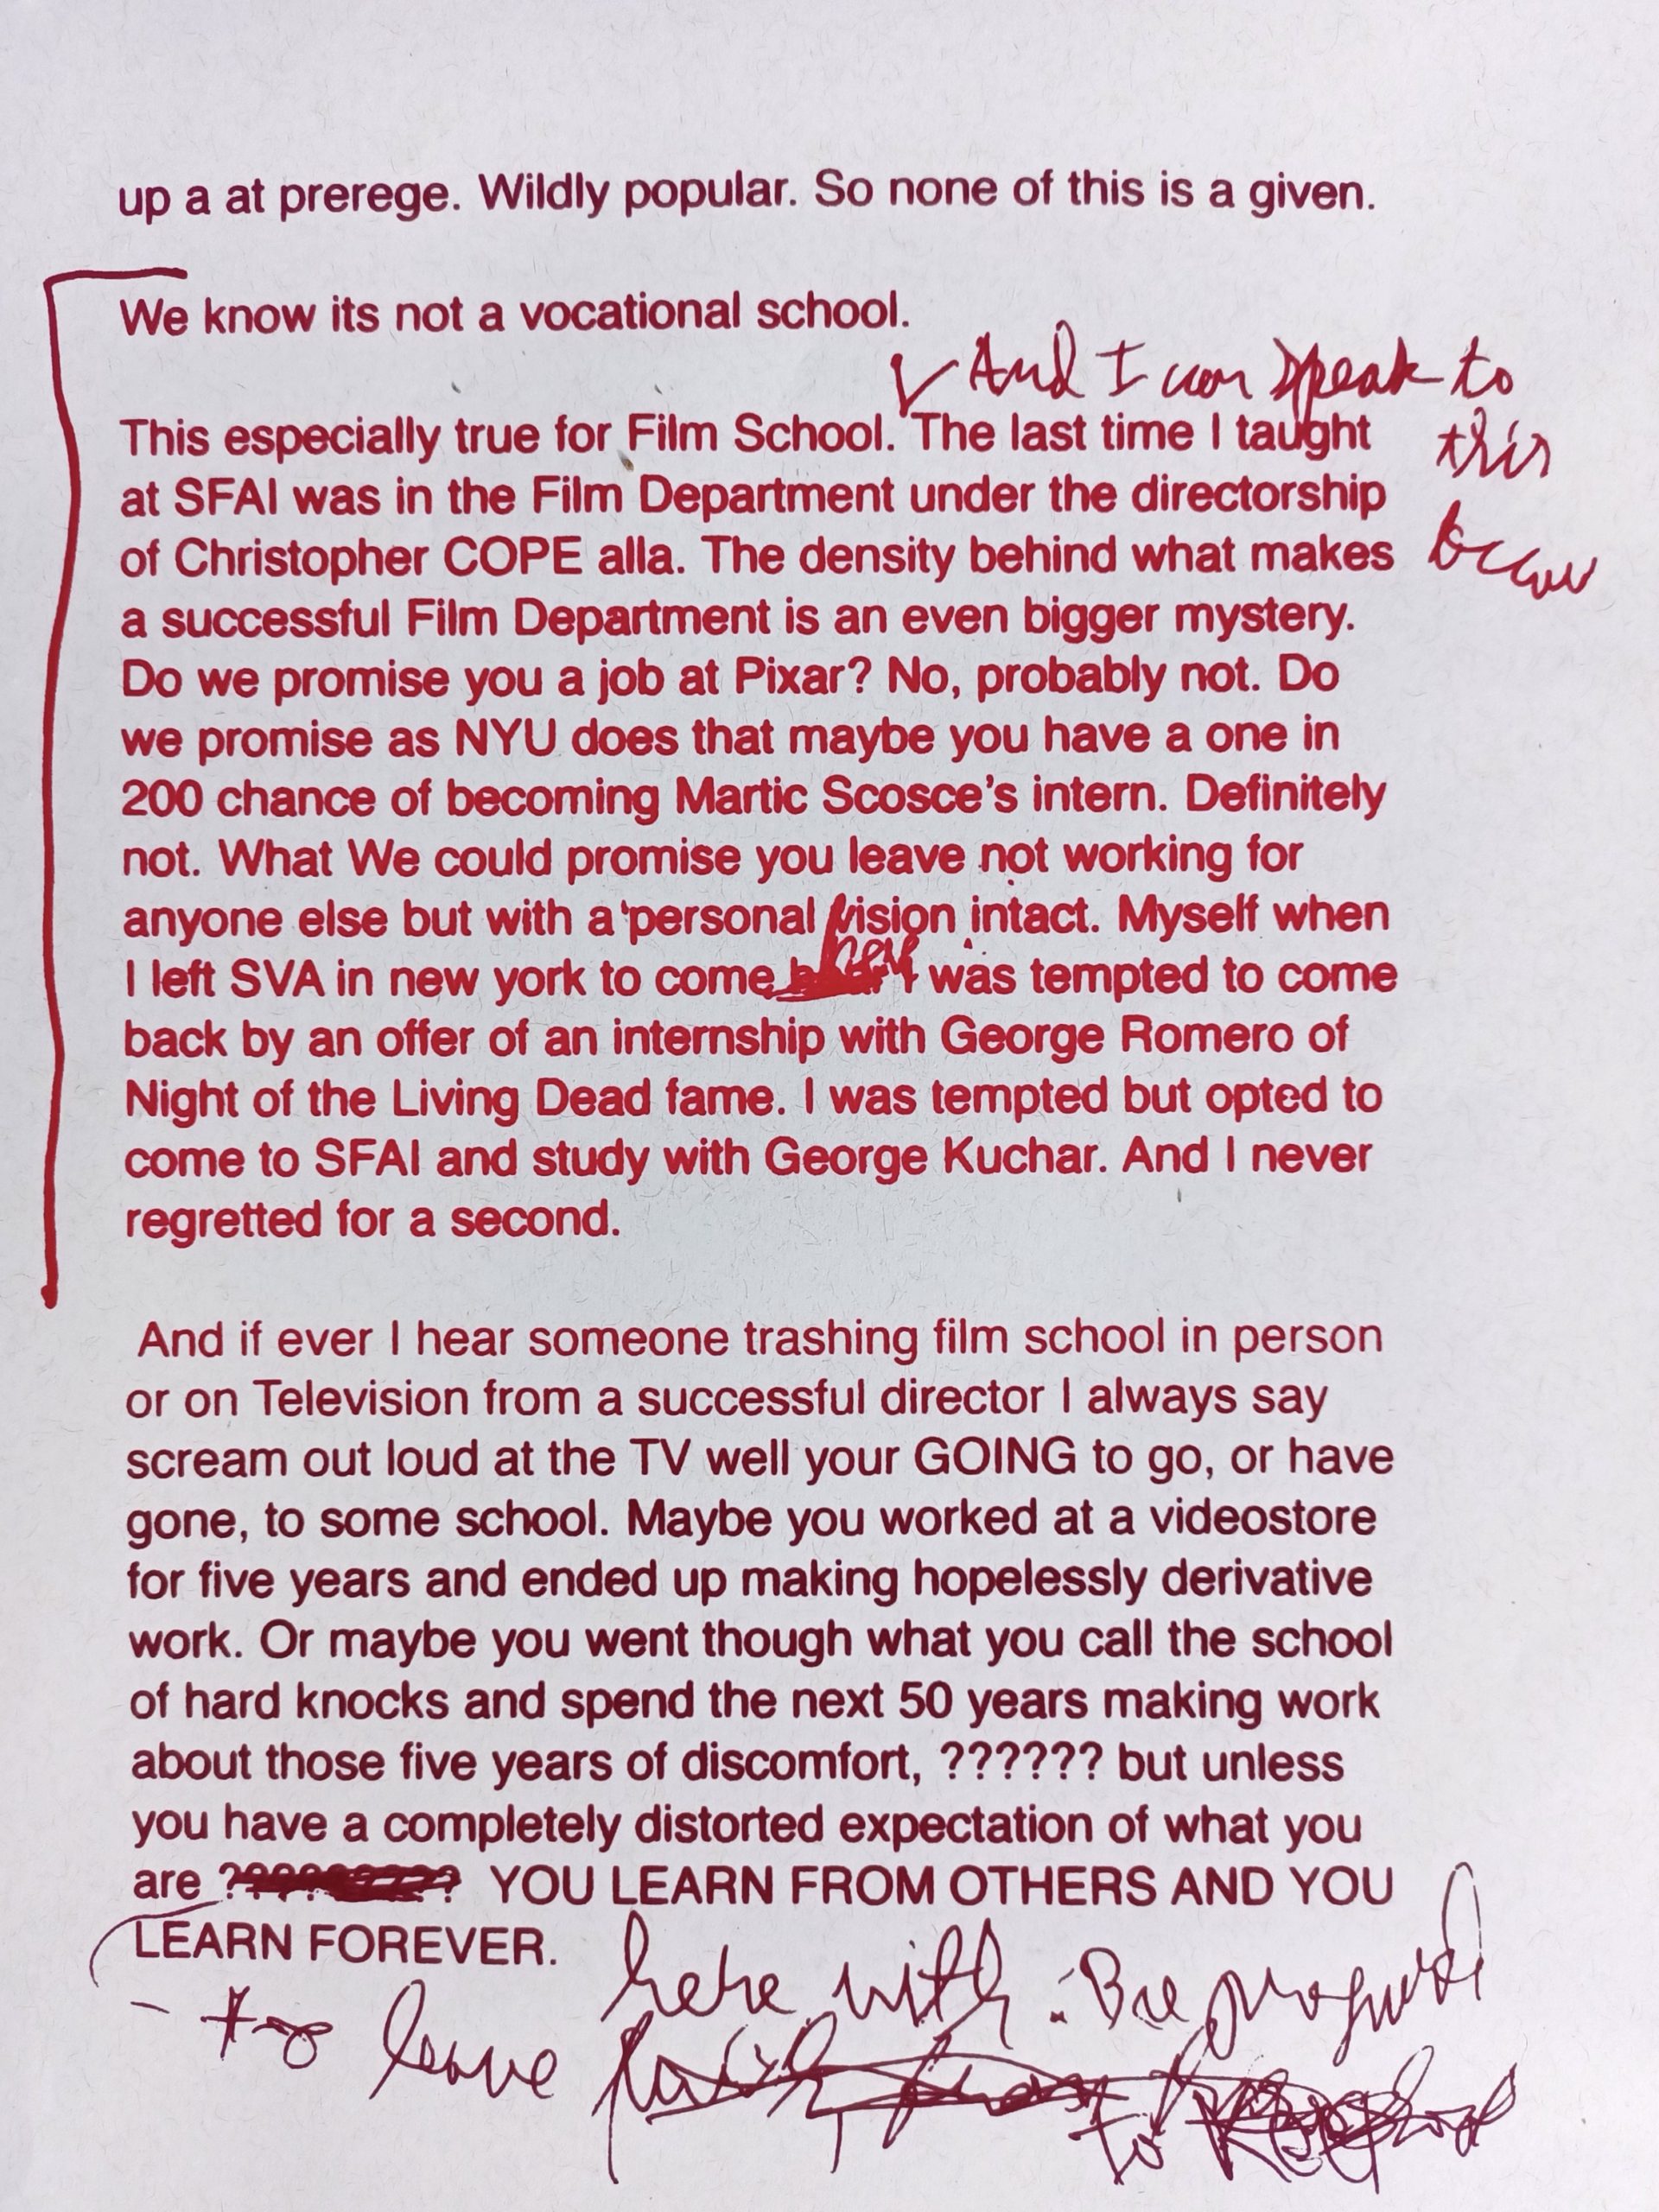 up a at prerege. Wildly popular. So none of this is a given.
We know its not a vocational school.
And I can speak to
this
becaus
This especially true for Film School. The last time I taught
at SFAI was in the Film Department under the directorship
of Christopher COPE alla. The density behind what makes
a successful Film Department is an even bigger mystery.
Do we promise you a job at Pixar? No, probably not. Do
we promise as NYU does that maybe you have a one in
200 chance of becoming Martic Scosce's intern. Definitely
not. What We could promise you leave not working for
anyone else but with a personal vision intact. Myself when
here
I left SVA in new york to come I was tempted to come
back by an offer of an internship with George Romero of
Night of the Living Dead fame. I was tempted but opted to
come to SFAI and study with George Kuchar. And I never
regretted for a second.
And if ever I hear someone trashing film school in person
or on Television from a successful director I always say
scream out loud at the TV well your GOING to go, or have
gone, to some school. Maybe you worked at a videostore
for five years and ended up making hopelessly derivative
work. Or maybe you went though what you call the school
of hard knocks and spend the next 50 years making work
about those five years of discomfort, ?????? but unless
you have a completely distorted expectation of what you
are ?????????? YOU LEARN FROM OTHERS AND YOU
LEARN FOREVER.
here with : Be
- to leave
to